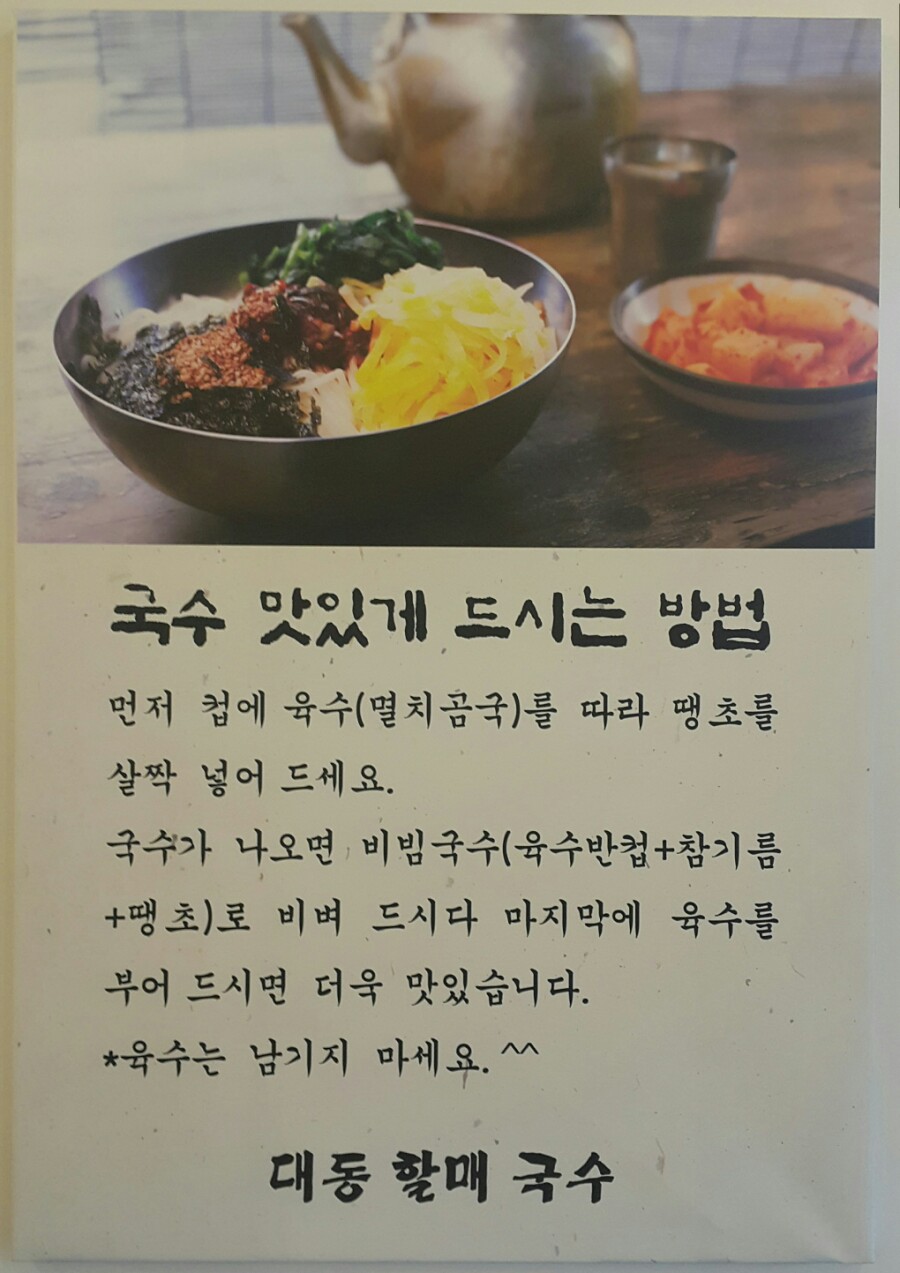 국수 맛있게 드시는 방법
먼저 컵에 육수(멸치곰국)를 따라 땡초를
살짝 넣어 드세요.
국수가 나오면 비빔국수(육수반컵+참기름
+땡초)로 비벼 드시다 마지막에 육수를
부어 드시면 더욱 맛있습니다.
*육수는 남기지 마세요. ^^
대동 할매 국수